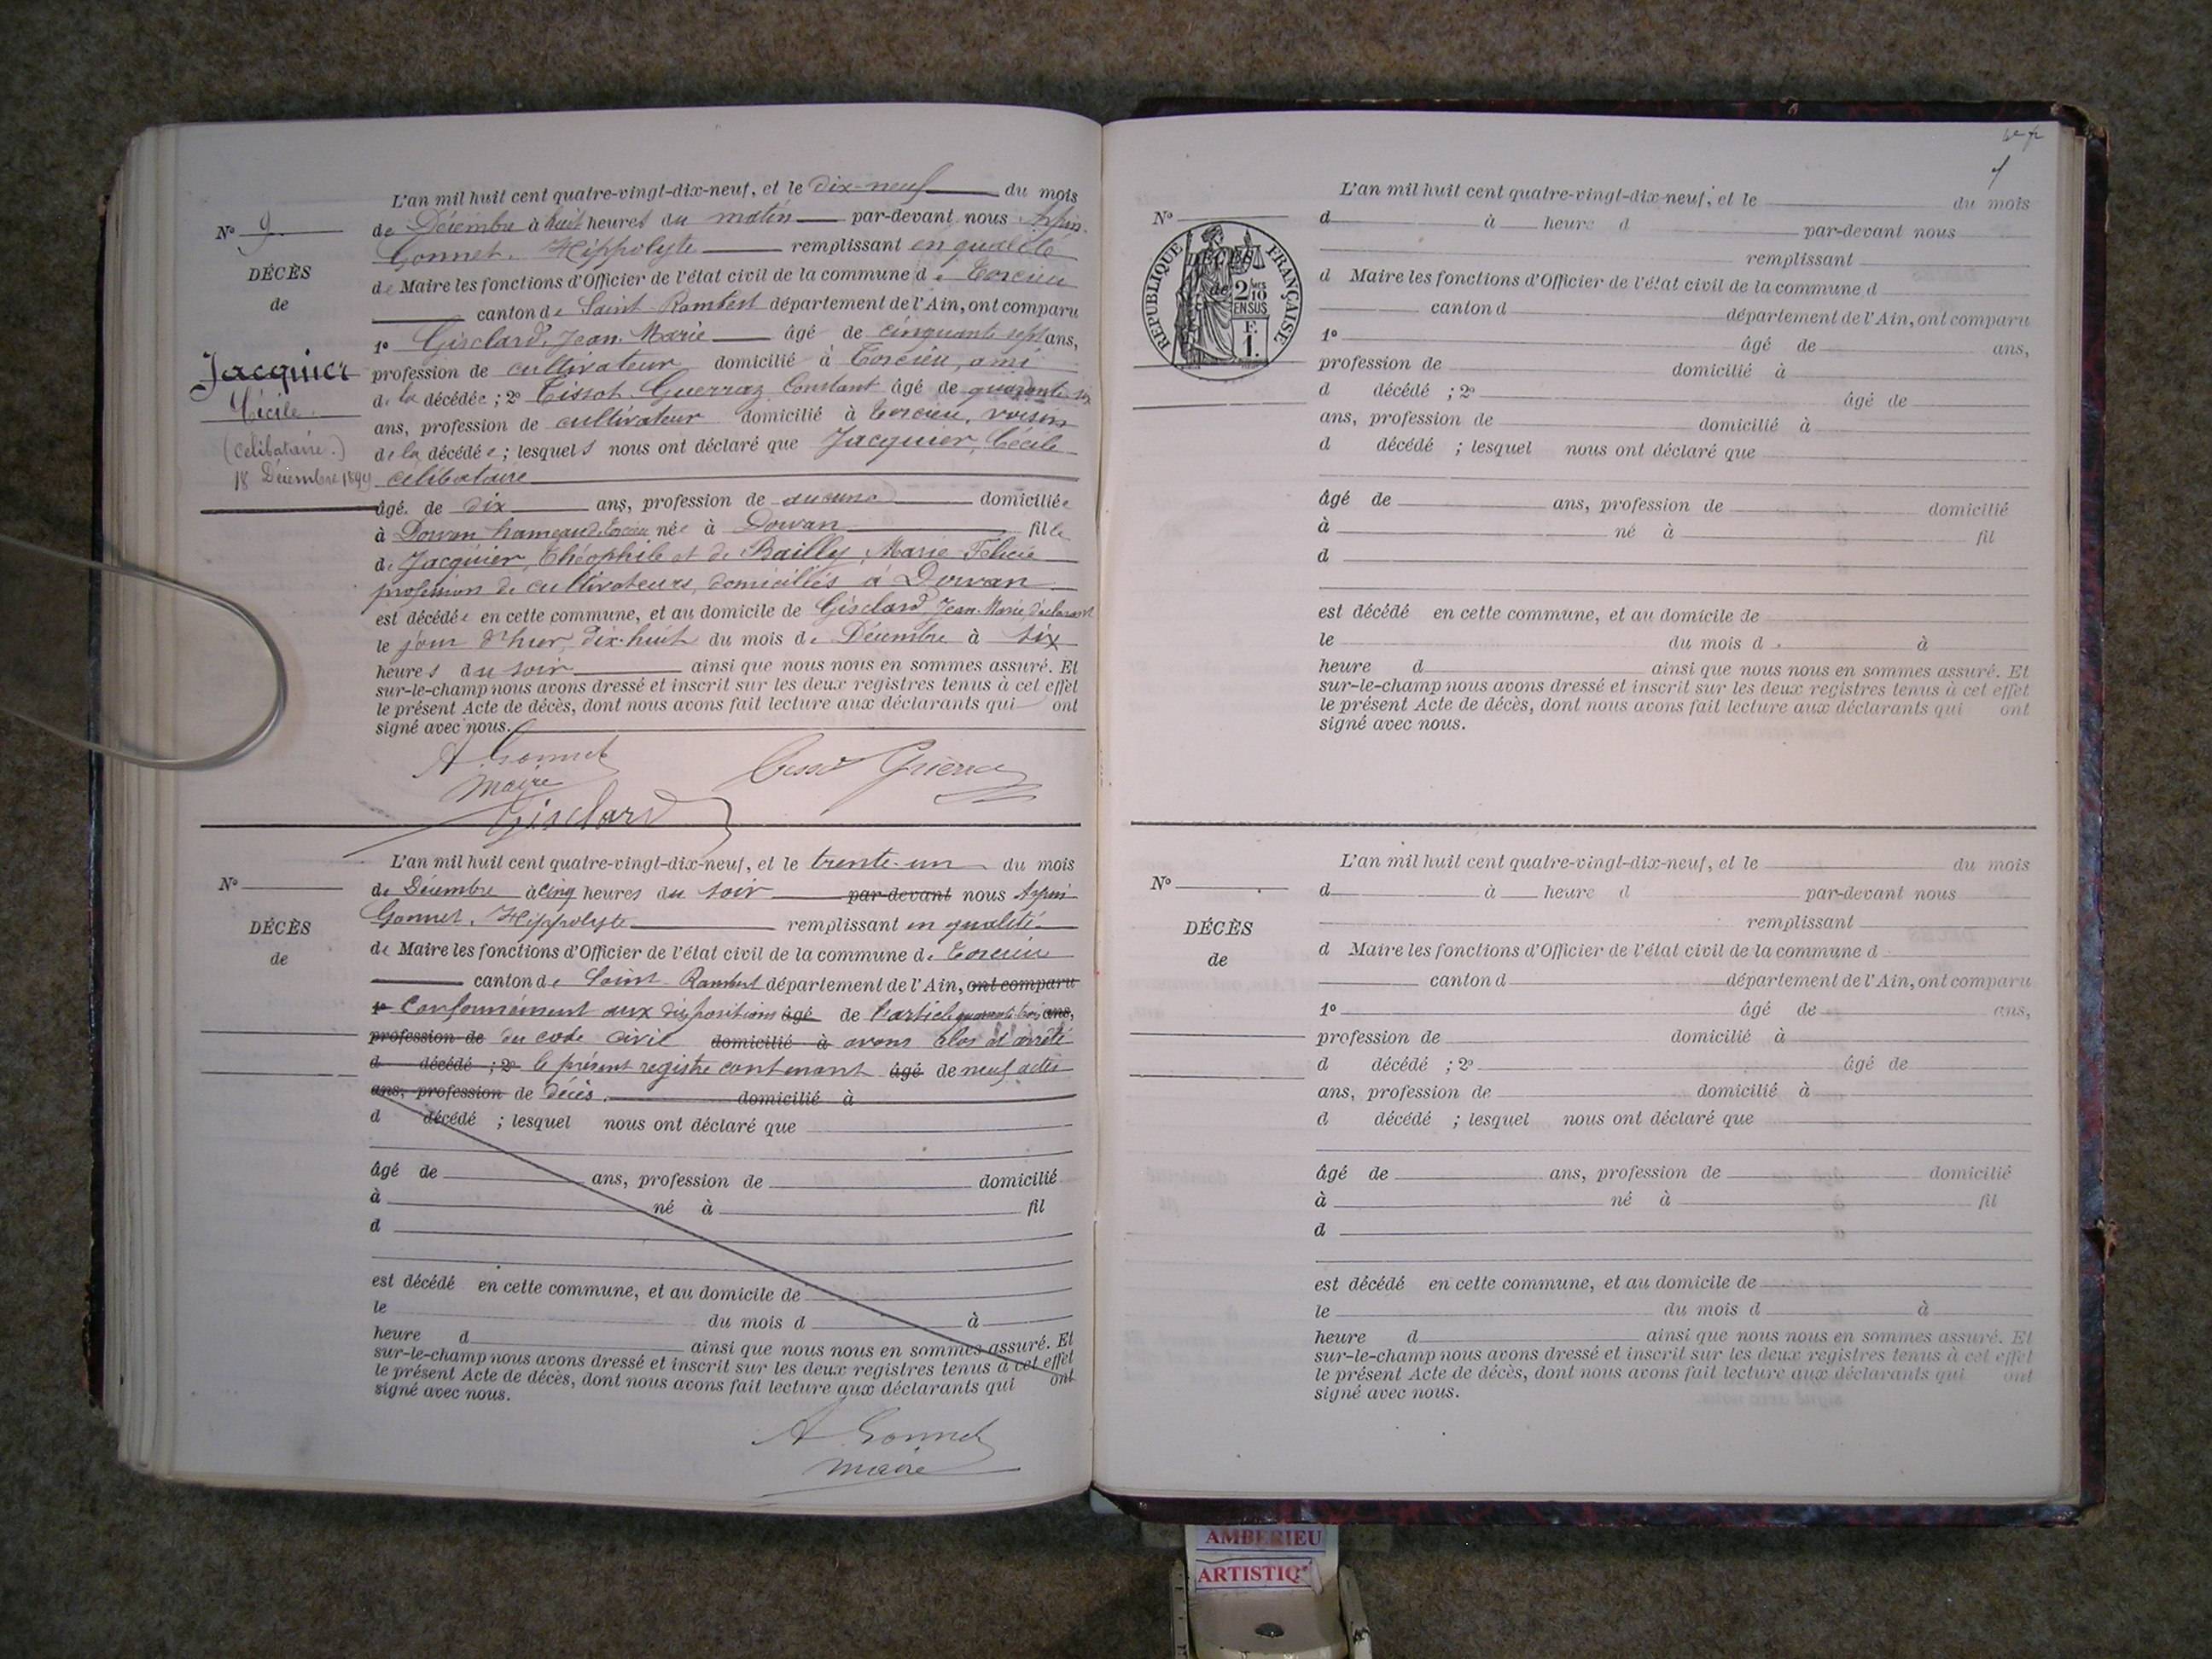 L'an mil huit cent quatre-vingt-dix-neuf, et le dix-neuf du mois
No 9
de Décembre à huit heures du matin par-devant nous
Gonnet, Hippolyte remplissant en qualité
DÉCÈS
de Maire les fonctions d'Officier de l'état civil de la commune de Torcieu
de
canton de Saint Rambert département de l'Ain, ont comparu
1o Gisclard, Jean Marie âgé de cinquante sept ans,
Jacquier
profession de cultivateur domicilié à Torcieu, ami
Cécile
de la décédée ; 2o Tissot Guerraz Constant âgé de quarante six
ans, profession de cultivateur domicilié à Torcieu, voisin
(célibataire.)
de la décédée ; lesquels nous ont déclaré que Jacquier, Cécile
18 Décembre 1899
célibataire
âgé de dix ans, profession de aucune domiciliée
à Dorvan hameau de Torcieu née à Dorvan fille
de Jacquier, Théophile et de Bailly, Marie Félicie
profession de cultivateurs, domiciliés à Dorvan
est décédée en cette commune, et au domicile de Gisclard, Jean Marie, déclarant
le jour d'hier, dix-huit du mois de Décembre à six
heures du soir ainsi que nous nous en sommes assuré. Et
sur-le-champ nous avons dressé et inscrit sur les deux registres tenus à cet effet
le présent Acte de décès, dont nous avons fait lecture aux déclarants qui ont
signé avec nous.
A Gonnet
maire
Tissot Guerraz
Gisclard
L'an mil huit cent quatre-vingt-dix-neuf, et le trente-un du mois
No
de Décembre à cinq heures du soir par-devant nous
Gonnet, Hippolyte remplissant en qualité
DÉCÈS
de Maire les fonctions d'Officier de l'état civil de la commune de Torcieu
de
canton de Saint Rambert département de l'Ain, ont comparu
1o Conformément aux dispositions âgé de l'article quarante trois ans,
profession de du code civil domicilié à avons clos et arrêté
d décédé ; 2o le présent registre contenant âgé de neuf actes
ans, profession de décès. domicilié à
d décédé ; lesquel nous ont déclaré que
âgé de ans, profession de domicilié
à né à fil
d
est décédé en cette commune, et au domicile de
le du mois d à
heure d ainsi que nous nous en sommes assuré. Et
sur-le-champ nous avons dressé et inscrit sur les deux registres tenus à cet effet
le présent Acte de décès, dont nous avons fait lecture aux déclarants qui ont
signé avec nous.
A Gonnet
maire
L'an mil huit cent quatre-vingt-dix-neuf, et le du mois
No
d à heure d par-devant nous
remplissant
RÉPUBLIQUE FRANÇAISE
2/10 EN SUS
F. 1.
DÉCÈS
de
d Maire les fonctions d'Officier de l'état civil de la commune d
canton d département de l'Ain, ont comparu
1o âgé de ans,
profession de domicilié à
d décédé ; 2o âgé de
ans, profession de domicilié à
d décédé ; lesquel nous ont déclaré que
âgé de ans, profession de domicilié
à né à fil
d
est décédé en cette commune, et au domicile de
le du mois d à
heure d ainsi que nous nous en sommes assuré. Et
sur-le-champ nous avons dressé et inscrit sur les deux registres tenus à cet effet
le présent Acte de décès, dont nous avons fait lecture aux déclarants qui ont
signé avec nous.
L'an mil huit cent quatre-vingt-dix-neuf, et le du mois
No
d à heure d par-devant nous
remplissant
DÉCÈS
d Maire les fonctions d'Officier de l'état civil de la commune d
de
canton d département de l'Ain, ont comparu
1o âgé de ans,
profession de domicilié à
d décédé ; 2o âgé de
ans, profession de domicilié à
d décédé ; lesquel nous ont déclaré que
âgé de ans, profession de domicilié
à né à fil
d
est décédé en cette commune, et au domicile de
le du mois d à
heure d ainsi que nous nous en sommes assuré. Et
sur-le-champ nous avons dressé et inscrit sur les deux registres tenus à cet effet
le présent Acte de décès, dont nous avons fait lecture aux déclarants qui ont
signé avec nous.
AMBERIEU
ARTISTIQ